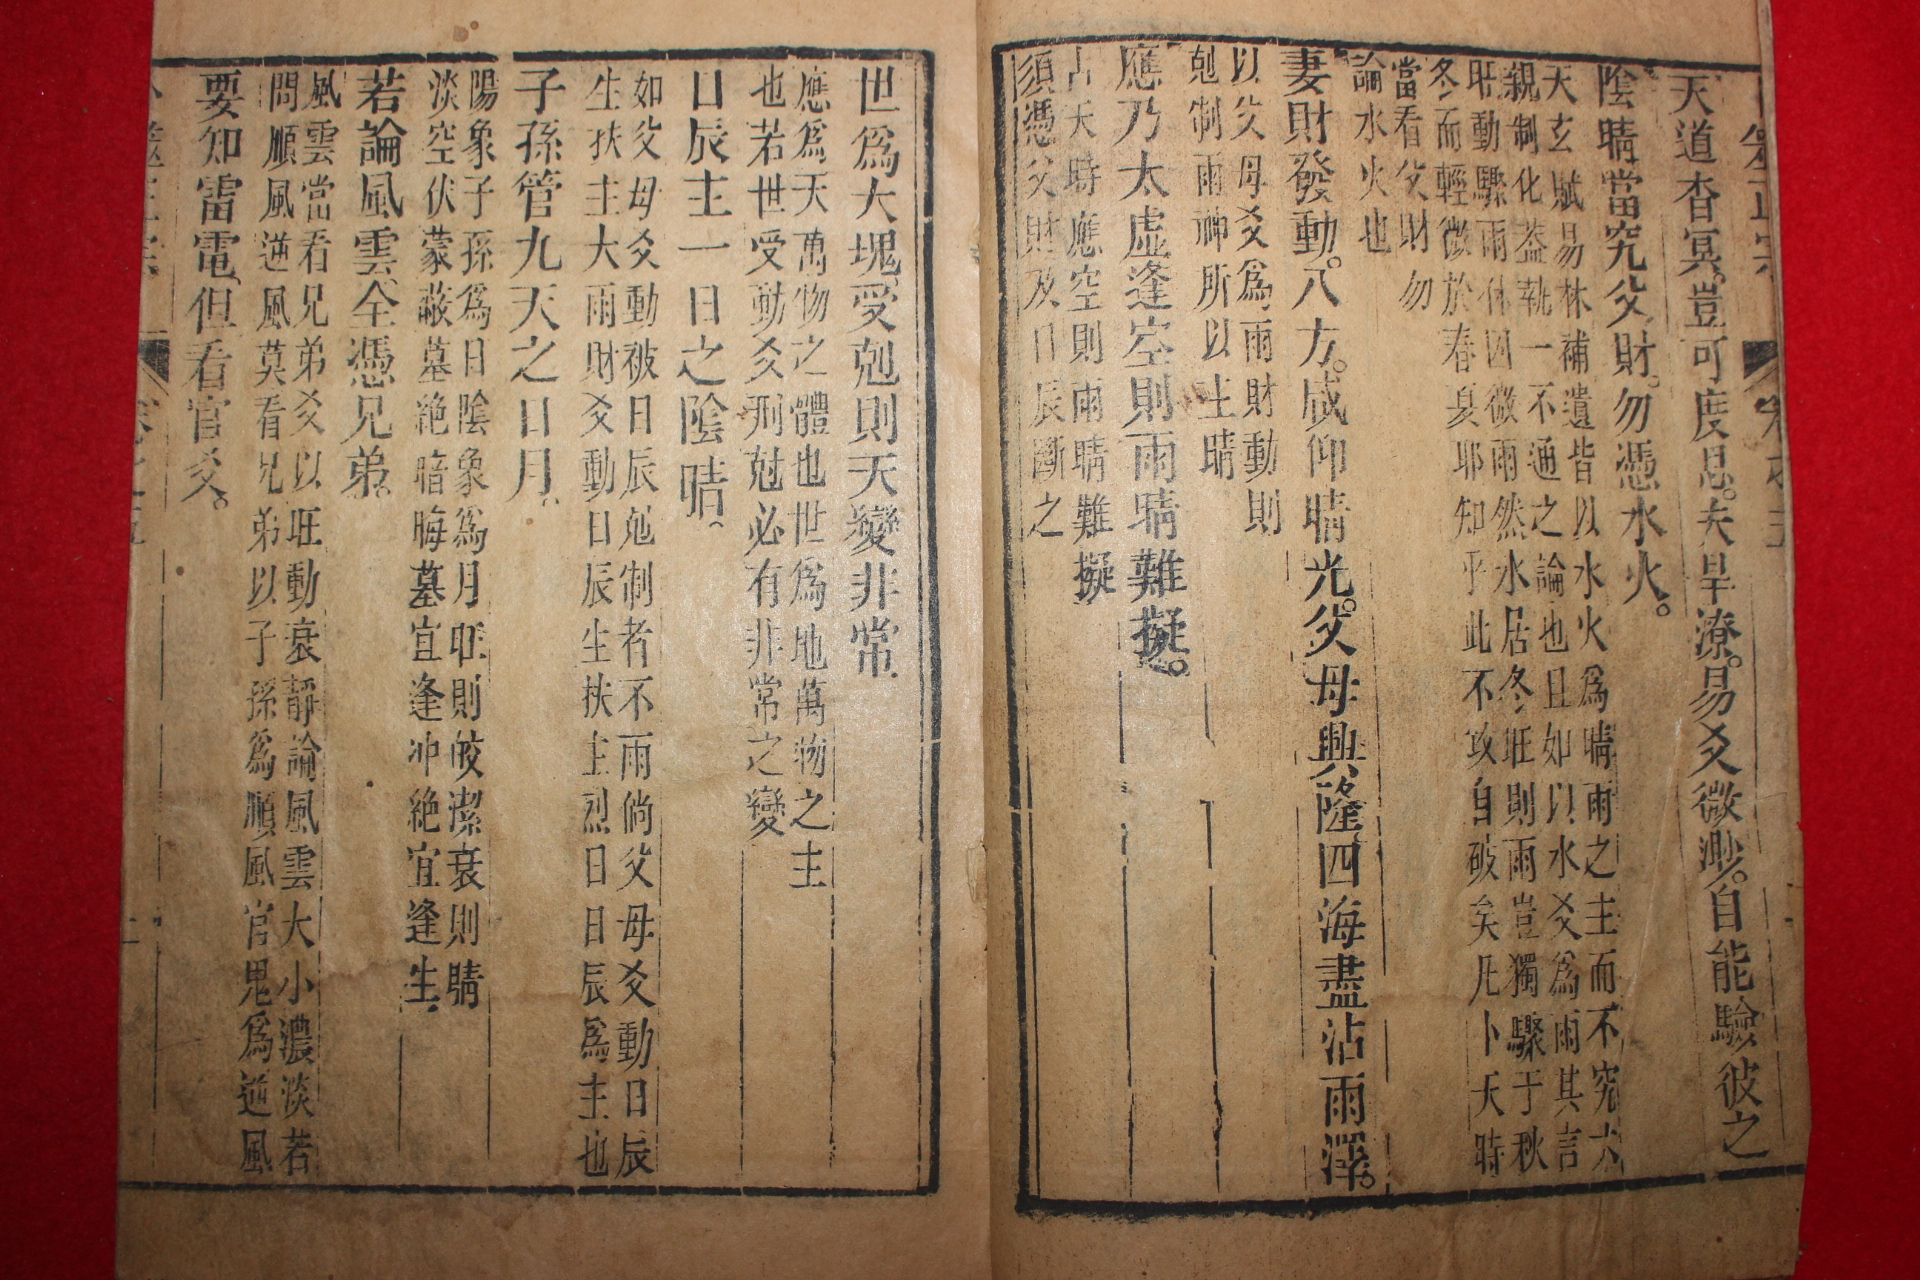 天道杳冥豈可度思夫旱潦易爻微渺自能驗彼之
陰晴當究父財勿憑水火
天玄賦易林補遺皆以水火爲晴雨之主而不究六
親制化蓋執一不通之論也且如以水爻爲雨其言
旺動驟雨休囚微雨然水居冬旺則雨豈獨驟于秋
冬而輕微於春夏耶知乎此不攻自破矣凡卜天時
當看父財勿
論水火也
妻財發動八方咸仰晴光父母興隆四海盡沾雨澤
以父母爻爲雨財動則
剋制雨神所以主晴
應乃太虛逢空則雨晴難擬
占天時應空則雨晴難擬
須憑父財及日辰斷之
世爲大塊受剋則天變非常
應爲天萬物之體也世爲地萬物之主
也若世受動爻刑尅必有非常之變
日辰主一日之陰晴
如父母爻動被日辰剋制者不雨倘父母爻動日辰
生扶主大雨財爻動日辰生扶主烈日日辰爲主也
子孫管九天之日月
陽象子孫爲日陰象爲月旺則皎潔衰則晴
淡空伏蒙蔽墓絶暗晦墓宜逢冲絶宜逢生
若論風雲全憑兄弟
風雲當看兄弟爻以旺動衰靜論風雲大小濃淡若
問順風逆風莫看兄弟以子孫爲順風官鬼爲逆風
要知雷電但看官爻